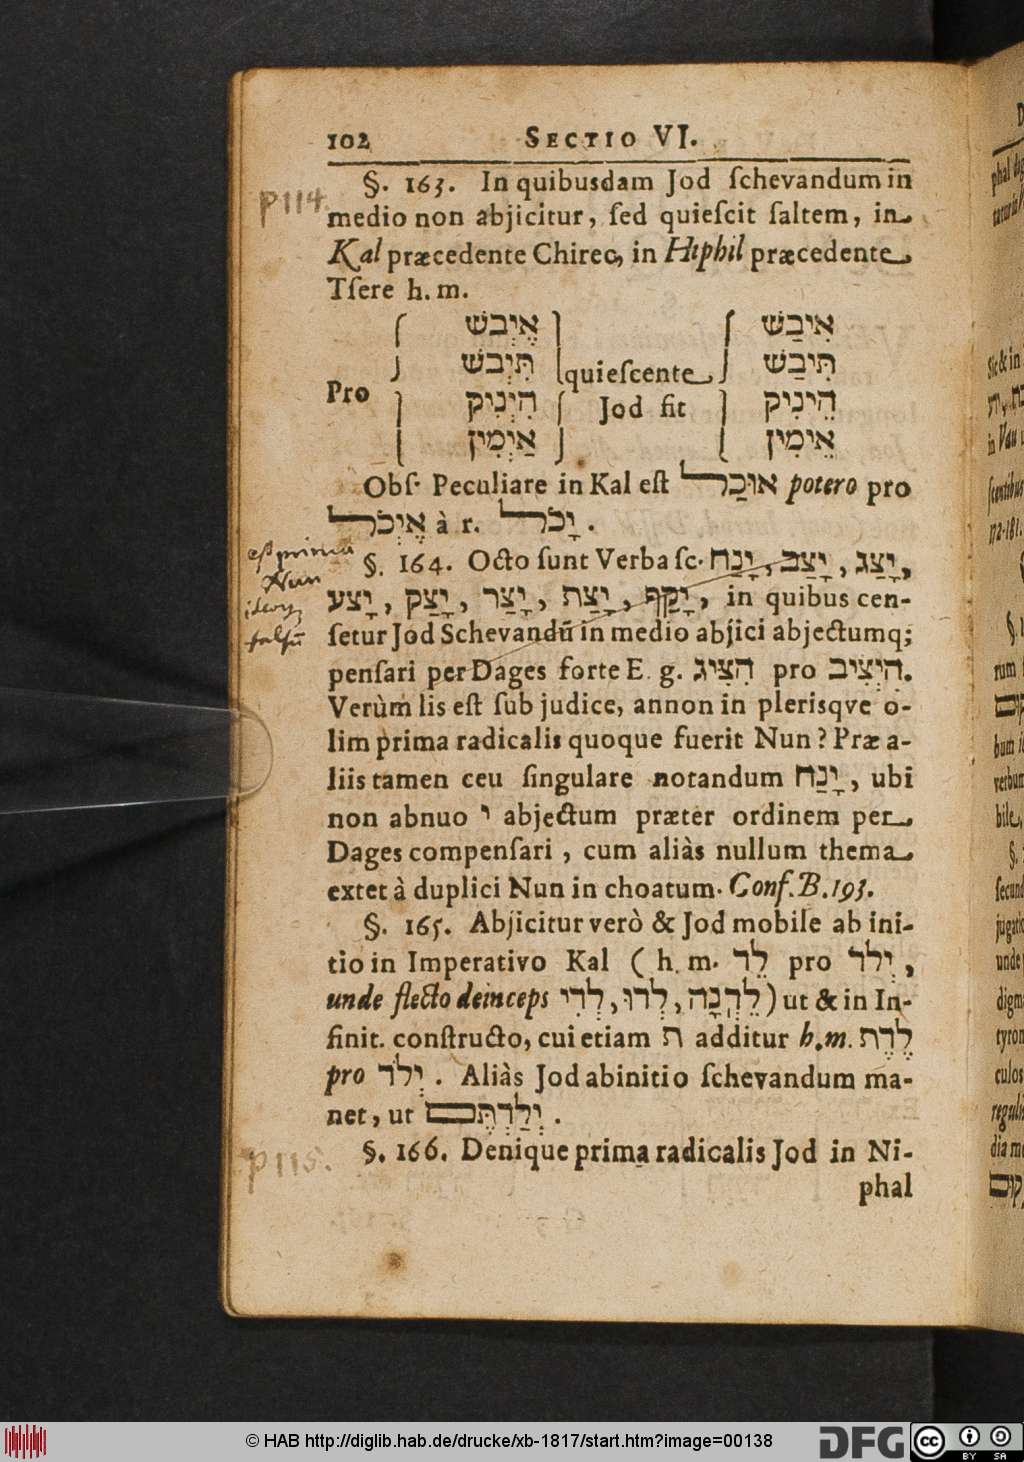 102 SECTIO VI.
§. 163. In quibusdam Jod ſchevandum in
p 114.
medio non abjicitur, ſed quieſcit ſaltem, in
Kal præcedente Chirec, in Hiphil præcedente
Tſere h. m.
אֶיְבשׁ אִיבַשׁ
תִּיְבשׁ quieſcente תִּיבַשׁ
Pro הִיְנִיק Jod fit הֵינִיק
אַיְמִין אֵימִין
Obſ. Peculiare in Kal eſt אוּכַל potero pro
אֶיְכֹל à r. יָכֹל .
eſt prima
Nun
ideoq;
falſũ
§. 164. Octo ſunt Verba ſc. יָצַג , יָצַב , יָנַח,
יָצע , יָצַק , יָצַר , יָצַת , יָקַף , in quibus cen-
ſetur Jod Schevandũ in medio abjici abjectumq;
penſari per Dages forte E. g. הִצִּיג pro הִיְצִיב.
Verùm lis eſt ſub judice, annon in plerisqve o-
lim prima radicalis quoque fuerit Nun? Præ a-
liis tamen ceu ſingulare notandum יָנַח , ubi
non abnuo י abjectum præter ordinem per
Dages compenſari , cum aliàs nullum thema
extet à duplici Nun in choatum. Conf. B. 193.
§. 165. Abjicitur verò & Jod mobile ab ini-
tio in Imperativo Kal ( h. m. לֵד pro יְלֵד ,
unde flecto deinceps לֵדְנָה, לְדוּ, לְדִי) ut & in In-
finit. conſtructo, cui etiam ת additur h. m. לֶדֶת
pro יְלֹד . Aliàs Jod abinitio ſchevandum ma-
net, ut יְלַדְתֶּם .
p 115.
§. 166. Denique prima radicalis Jod in Ni-
phal
© HAB http://diglib.hab.de/drucke/xb-1817/start.htm?image=00138
DFG
cc
BY SA